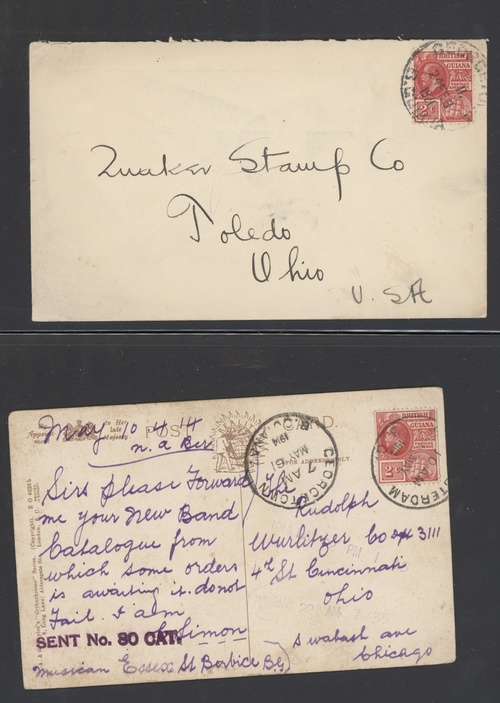 GEORGETOWN
BRITISH
GUIANA
2c
Quaker Stamp Co
Toledo
Ohio
U. SA
POST CARD.
FOR ADDRESS ONLY
BRITISH
GUIANA
2
GEORGETOWN
7 AM
MAY
1914
10 AM
May 10 4 14
n. a Ber
Sirs please Forward
me your New Band
Catalogue from
which some orders
is awaiting it. do not
Fail. I am
Simon
SENT No. 80 CAT.
musican Essex St Berbice B.G
Rudolph
Wurlitzer Co
4th St Cincinnati
Ohio
S wabash ave
Chicago